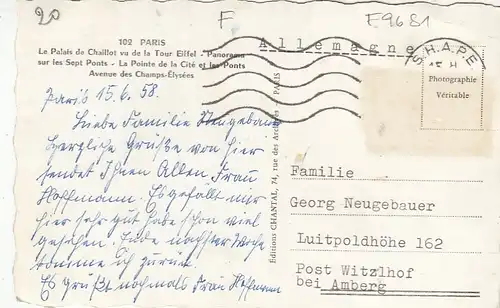 20
F
E9681
102 PARIS
Le Palais de Chaillot vu de la Tour Eiffel - Panorama
sur les Sept Ponts - La Pointe de la Cité et les Ponts
Avenue des Champs-Élysées
Allemagne
S.H.A.P.E
Photographie
Véritable
Paris 15.6.58.
Liebe Familie Neugebauer
Herzliche Grüße von hier
sendet Ihnen Allen Frau
Hoffmann. Es gefällt mir
hier sehr gut habe schon viel
gesehen. Ende nächster Woche
komme ich zurück.
Es grüßt nochmals Frau Hoffmann
Éditions CHANTAL, 74, rue des Archives - PARIS
Familie
Georg Neugebauer
Luitpoldhöhe 162
Post Witzlhof
bei Amberg